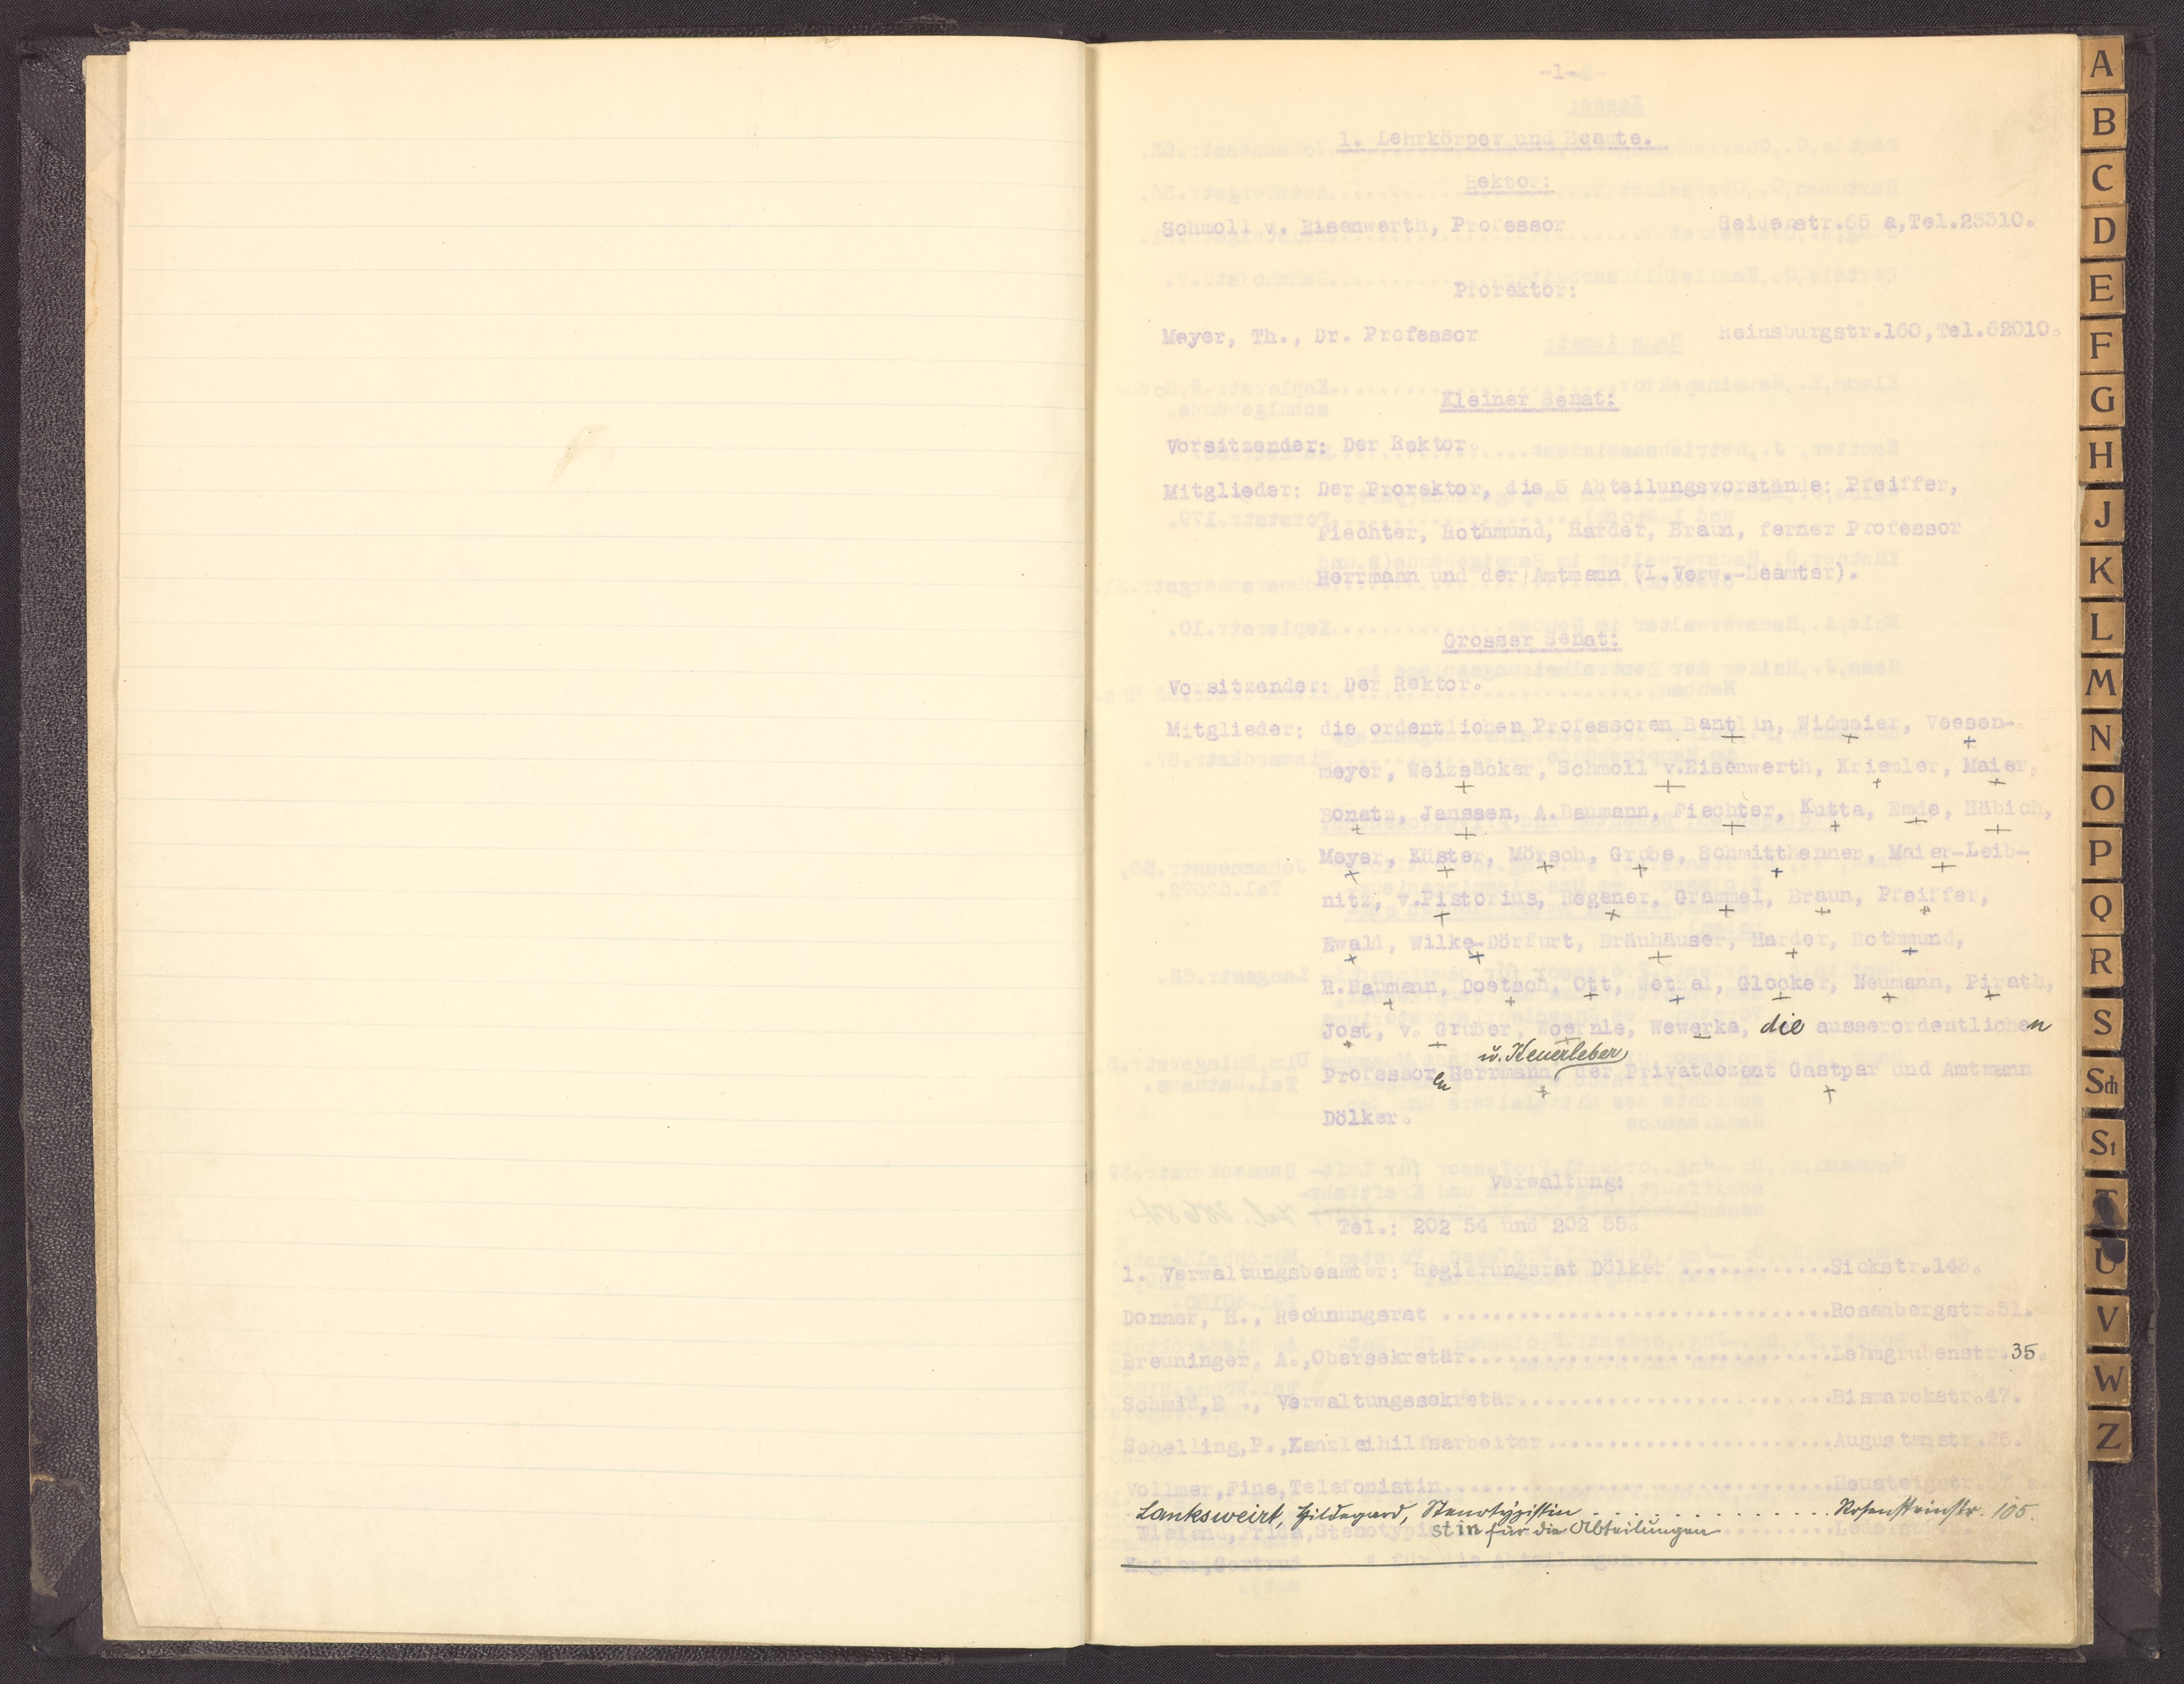 -1-
1. Lehrkörper und Beamte.
Rektor:
Schmoll v. Eisenwerth, Professor Seidenstr.65 a,Tel.23310.
Prorektor:
Meyer, Th., Dr. Professor Reinsburgstr.160,Tel.62010.
Kleiner Senat:
Vorsitzender: Der Rektor.
Mitglieder: Der Prorektor, die 5 Abteilungsvorstände: Pfeiffer,
Fiechter, Rothmund, Harder, Braun, ferner Professor
Herrmann und der Amtmann (I.Verw.-Beamter).
Grosser Senat:
Vorsitzender: Der Rektor.
Mitglieder: die ordentlichen Professoren Bantlin, Widmaier, Veesen-
meyer, Weizsäcker, Schmoll v.Eisenwerth, Kriemler, Maier,
Bonatz, Janssen, A.Baumann, Fiechter, Kutta, Emde, Häbich,
Meyer, Küster, Mörsch, Grube, Schmitthenner, Maier-Leib-
nitz, v.Pistorius, Regener, Grammel, Braun, Pfeiffer,
Ewald, Wilke-Dörfurt, Bräuhäuser, Harder, Rothmund,
R.Baumann, Doetsch, Ott, Wetzel, Glocker, Neumann, Pirath,
Jost, v. Gruber, Woernle, Wewerka, die ausserordentlichen
u. Keuerleber
Professoren Herrmann, der Privatdozent Gastpar und Amtmann
Dölker.
Verwaltung:
Tel.: 202 54 und 202 55.
1. Verwaltungsbeamter: Regierungsrat Dölker ............Sickstr.145.
Donner, H., Rechnungsrat ...............................Rosenbergstr.51.
Breuninger, A.,Obersekretär.............................Lehmgrubenstr.35.
Schmid,E ., Verwaltungssekretär.........................Bismarckstr.47.
Schelling,P.,Kanzleihilfsarbeiter.......................Augustenstr.26.
Vollmer,Fine,Telefonistin...............................Heusteigstr.
Lanksweirt, Hildegard, Stenotypistin ............... Rosensteinstr. 105.
Wieland,Frida,Stenotypistin für die Abteilungen
für die Abteilungen
A
B
C
D
E
F
G
H
J
K
L
M
N
O
P
Q
R
S
Sch
St
T
U
V
W
Z